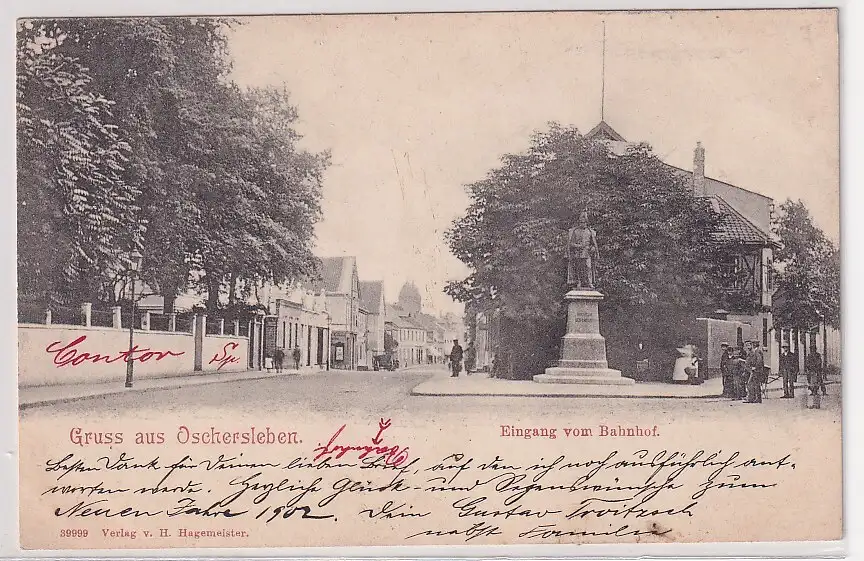 Contor Sp.
Gruss aus Oschersleben.
Eingang vom Bahnhof.
Bahnhof.
Besten Dank für Deinen lieben Brief, auf den ich noch ausführlich ant-
worten werde. Herzliche Glück- und Segenswünsche zum
Neuen Jahre 1902. Dein Gustav Troitzsch
nebst Familie
39999 Verlag v. H. Hagemeister.